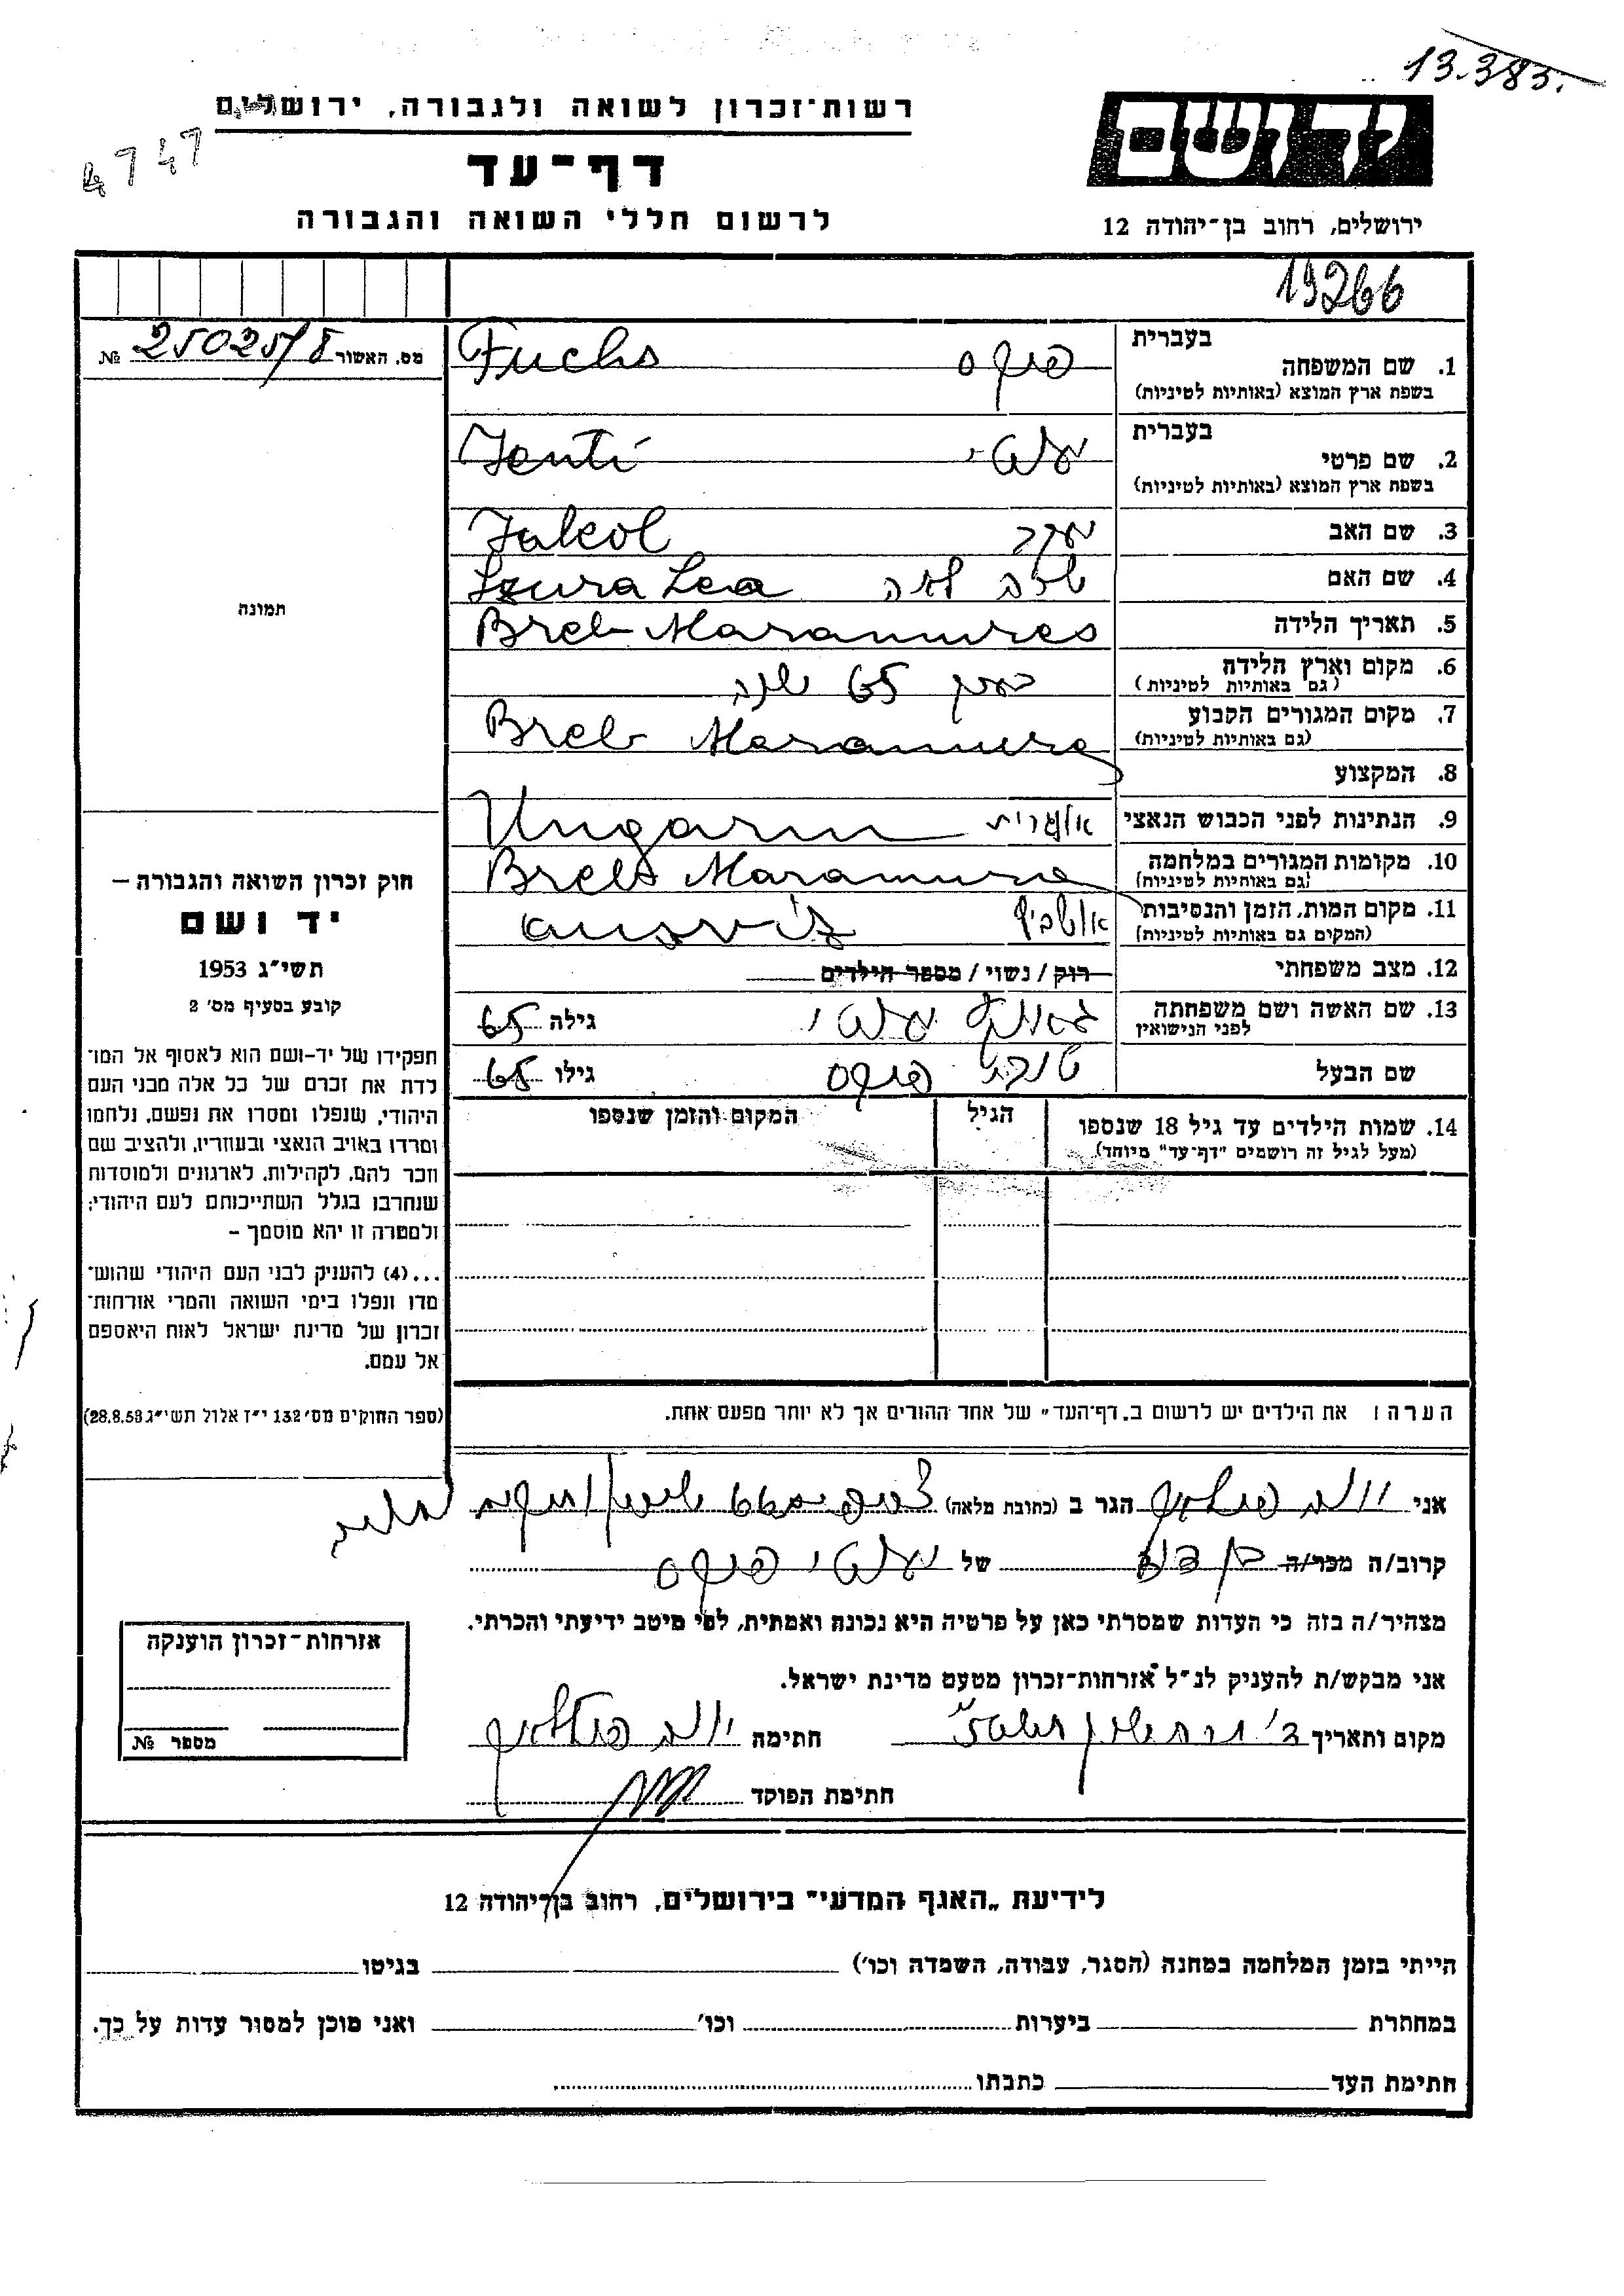 13.383.
רשות־זכרון לשואה ולגבורה, ירושלים
4747
דף־עד
לרשום חללי השואה והגבורה
ידושם
ירושלים, רחוב בן־יהודה 12
19266
מס. האשור 25025/8 №
בעברית
1. שם המשפחה
בשפת ארץ המוצא (באותיות לטיניות)
פוקס Fuchs
בעברית
2. שם פרטי
בשפת ארץ המוצא (באותיות לטיניות)
יענטי Jenti
3. שם האב יעקב Jakob
4. שם האם לאה Szura Lea
5. תאריך הלידה Breb Maramures
6. מקום וארץ הלידה
(גם באותיות לטיניות)
65 שנה
7. מקום המגורים הקבוע
(גם באותיות לטיניות)
Breb Maramures
8. המקצוע
9. הנתינות לפני הכבוש הנאצי אונגרית Ungarn
10. מקומות המגורים במלחמה
(גם באותיות לטיניות)
Breb Maramures
11. מקום המות, הזמן והנסיבות
(המקום גם באותיות לטיניות)
אושביץ
12. מצב משפחתי רוק / נשוי / מספר הילדים
13. שם האשה ושם משפחתה
לפני הנישואין
יענטי גילה 65
שם הבעל פוקס גילו 65
14. שמות הילדים עד גיל 18 שנספו
(מעל לגיל זה רושמים "דף־עד" מיוחד)
הגיל
המקום והזמן שנספו
הערה: את הילדים יש לרשום ב„דף־העד" של אחד ההורים אך לא יותר מפעם אחת.
תמונה
חוק זכרון השואה והגבורה –
יד ושם
תשי״ג 1953
קובע בסעיף מס׳ 2
תפקידו של יד-ושם הוא לאסוף אל המו־
לדת את זכרם של כל אלה מבני העם
היהודי, שנפלו ומסרו את נפשם, נלחמו
ומרדו באויב הנאצי ובעוזריו, ולהציב שם
וזכר להם, לקהילות, לארגונים ולמוסדות
שנחרבו בגלל השתייכותם לעם היהודי;
ולמטרה זו יהא מוסמך –
...(4) להעניק לבני העם היהודי שהוש־
מדו ונפלו בימי השואה והמרי אזרחות־
זכרון של מדינת ישראל לאות היאספם
אל עמם.
(ספר החוקים מס׳ 132 י״ז אלול תשי״ג 28.8.53)
אני הגר ב (כתובת מלאה)
קרוב/ה מכר/ה של יענטי פוקס
מצהיר/ה בזה כי העדות שמסרתי כאן על פרטיה היא נכונה ואמתית, לפי מיטב ידיעתי והכרתי.
אני מבקש/ת להעניק לנ״ל אזרחות-זכרון מטעם מדינת ישראל.
מקום ותאריך חתימה
חתימת הפוקד
אזרחות־זכרון הוענקה
מספר №
לידיעת „האגף המדעי" בירושלים, רחוב בן־יהודה 12
הייתי בזמן המלחמה במחנה (הסגר, עבודה, השמדה וכו׳) בגיטו
במחתרת ביערות וכו׳ ואני מוכן למסור עדות על כך.
חתימת העד כתבתו